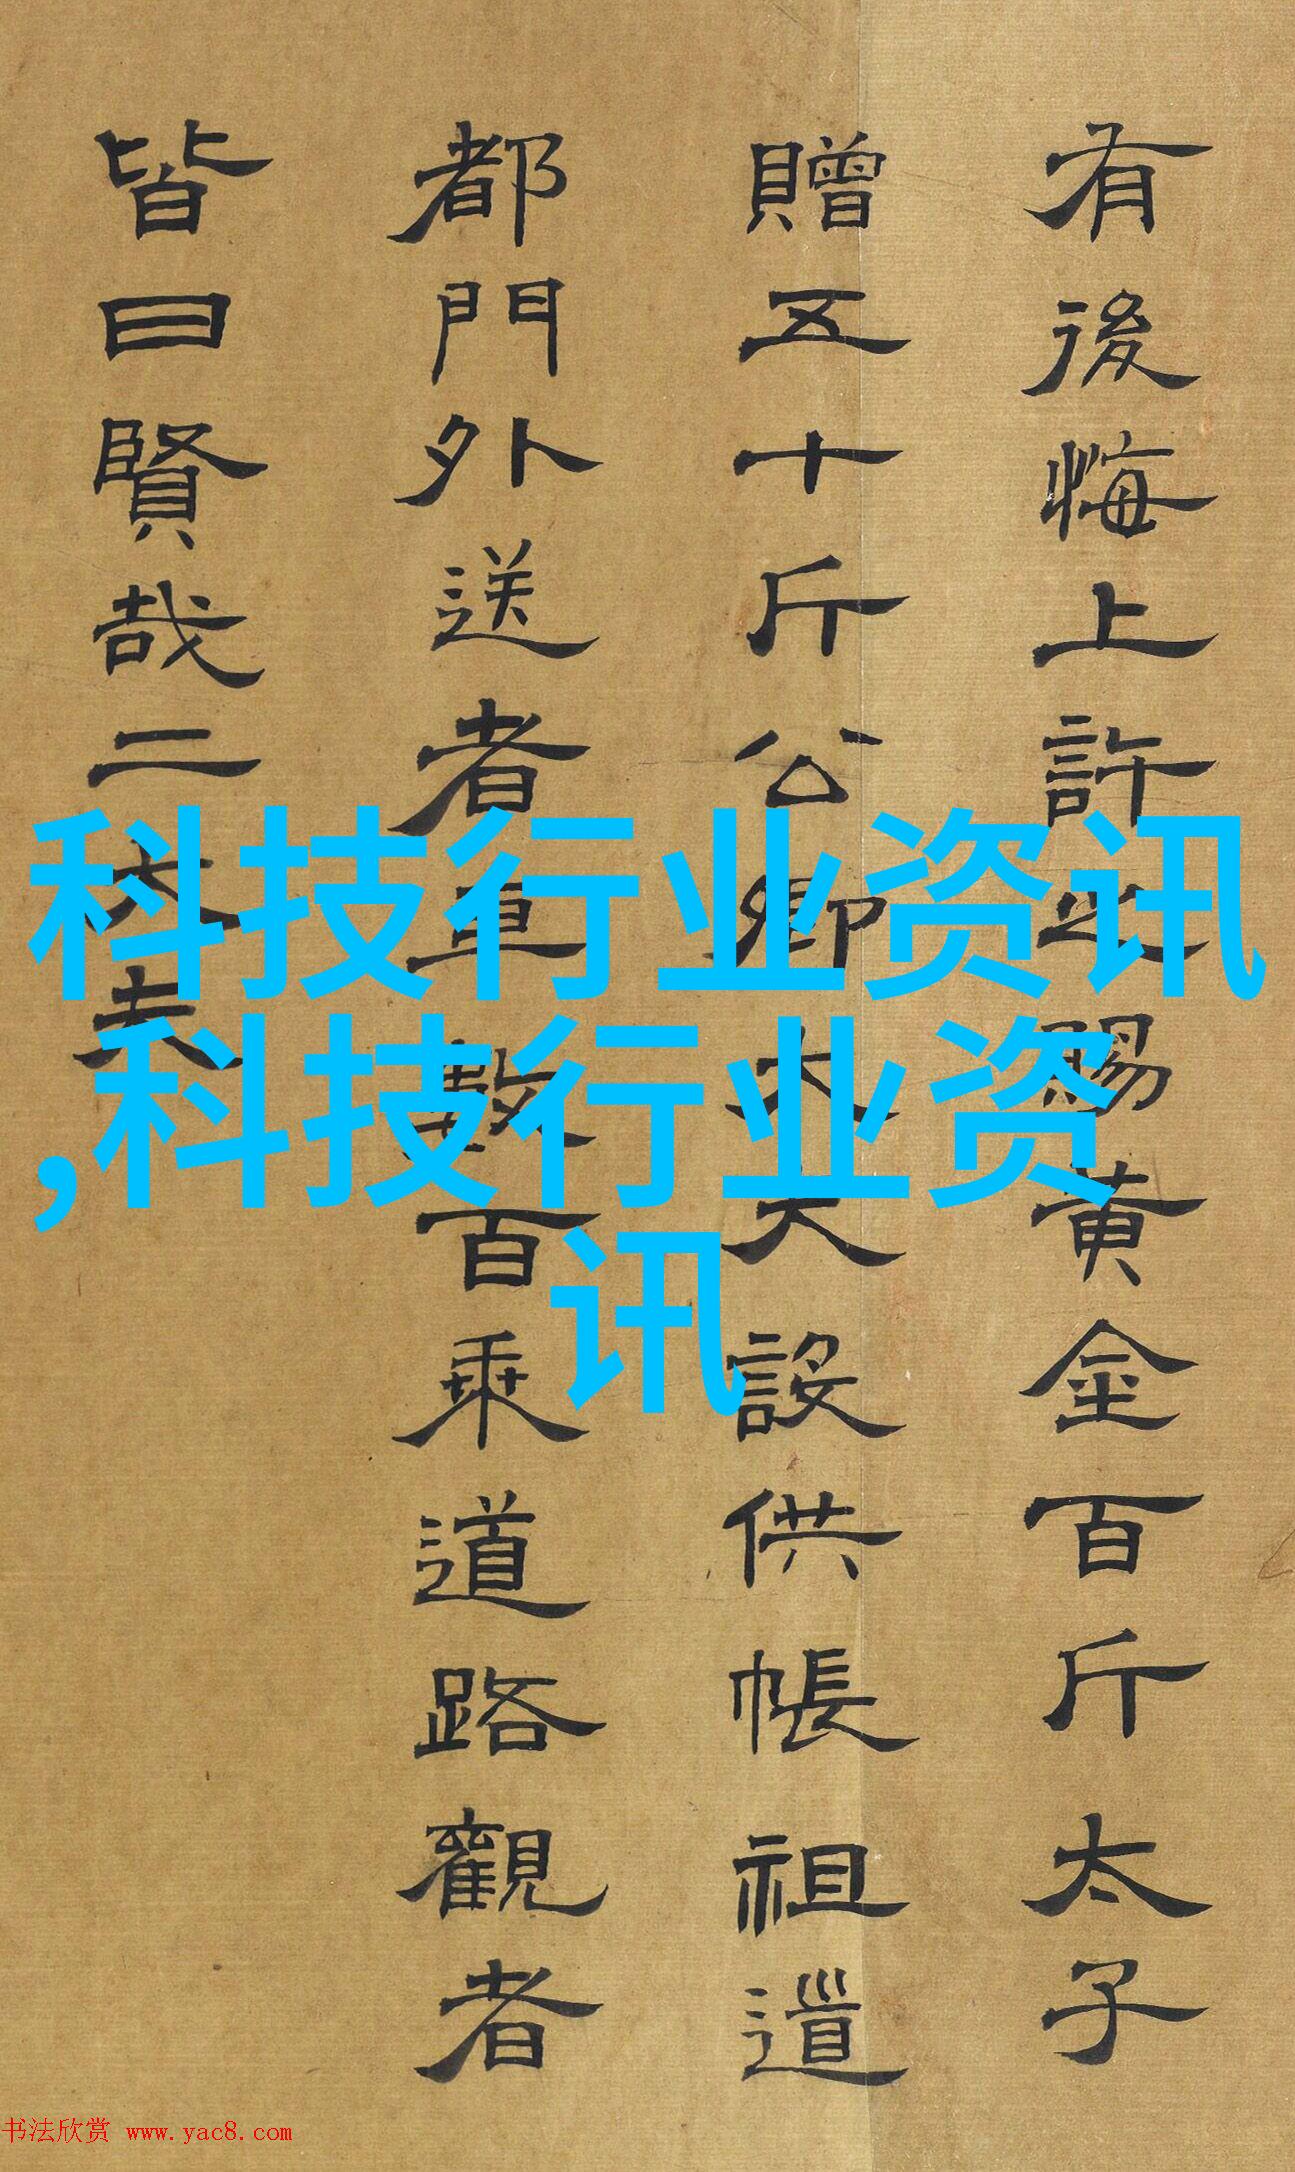 有後悔上許之賜黄金百斤太子
贈五十斤公卿大夫設供帳祖道
都門外送者車數百乘道路觀者
皆曰賢哉二大夫
科技行业资讯
,科技行业资
讯
书法欣赏 www.yac8.com